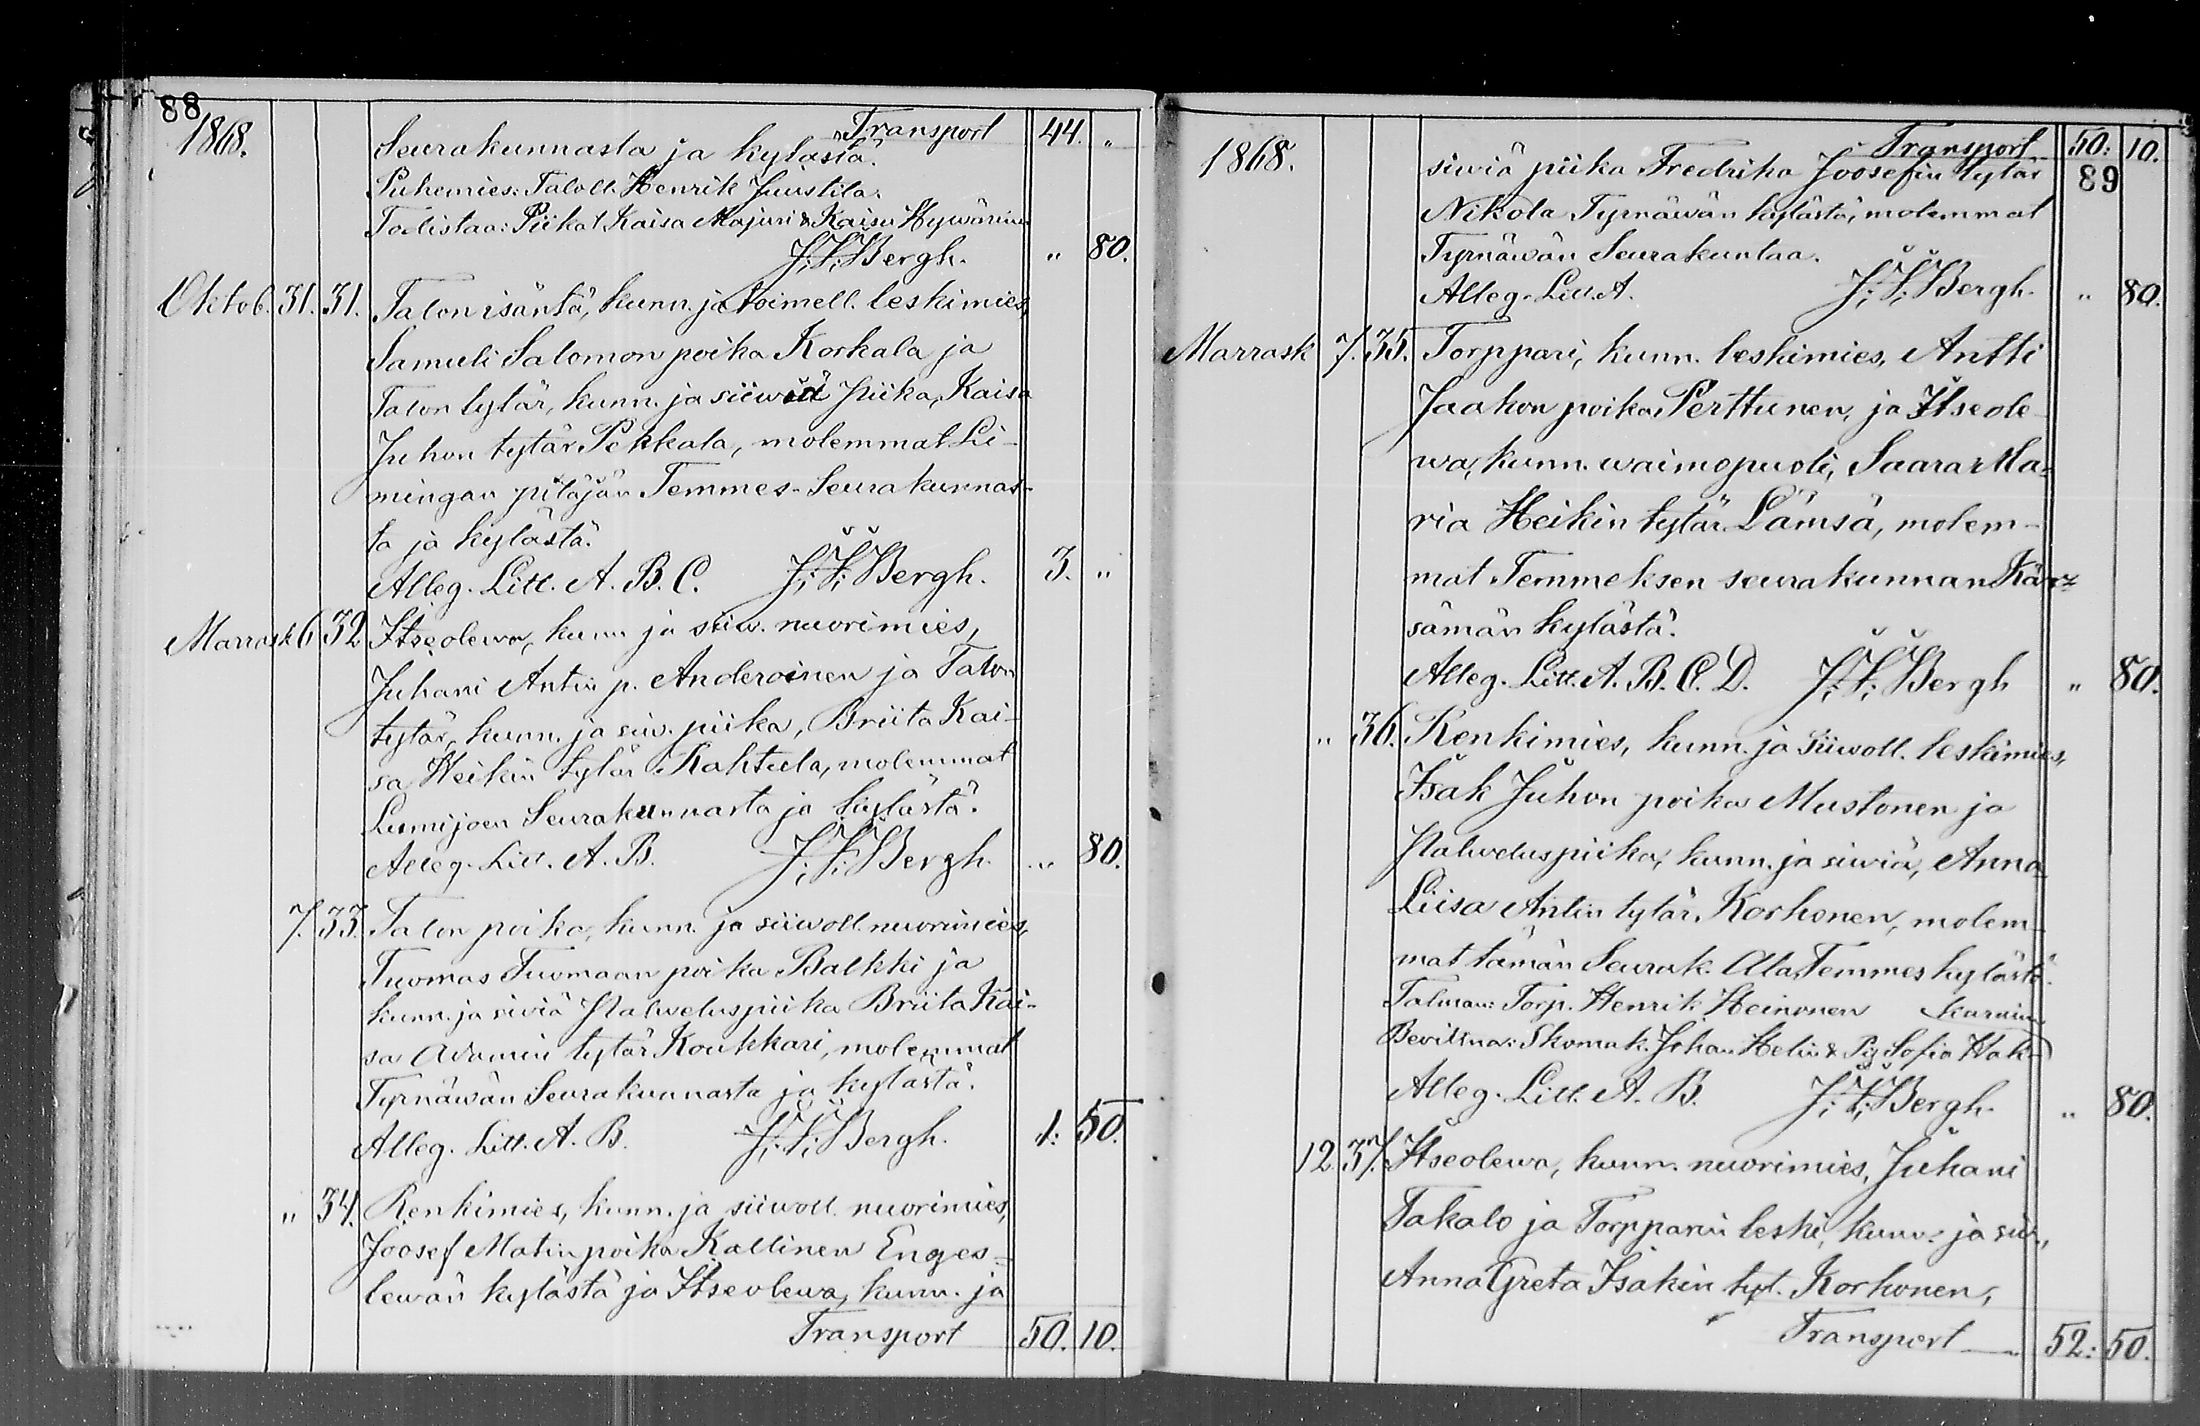 88
1868. Transport 44. "
Seurakunnasta ja kylästä.
Puhemies: Taloll. Henrik Juustila.
Todistaa: Piikat Kaisa Majuri & Kaisa Hywärinen
J. F. Bergh. " 80.
Oktob. 31. 31. Talon isäntä, kunn. ja toimell. leskimies,
Samuli Salomon poika Korkala ja
Talon tytär, kunn. ja siiwiä piika, Kaisa
Juhon tytär Pekkala, molemmat Li-
mingan pitäjän Temmes-Seurakunnas-
ta ja kylästä.
Alleg. Litt. A. B. C. J. F. Bergh. 3. "
Marrask 6 32 Itseolewa, kunn. ja siiw. nuorimies,
Juhani Antin p. Anderoinen ja Talon
tytär, kunn. ja siw. piika, Briita Kai-
sa Heikin tytär Rahtula, molemmat
Lumijoen Seurakunnasta ja kylästä.
Alleg. Litt. A. B. J. F. Bergh. " 80.
7. 33. Talon poika, kunn. ja siiwoll. nuorimies,
Tuomas Tuomaan poika Balkki ja
kunn. ja siviä Palweluspiika Briita Kai-
sa Adamin tytär Koukkari, molemmat
Tyrnäwän Seurakunnasta ja kylästä.
Alleg. Litt. A. B. J. F. Bergh. 1: 50.
" 34. Renkimies, kunn. ja siiwoll. nuorimies,
Joosef Matin poika Kallinen Enges-
lewän kylästä ja Itseolewa, kunn. ja
Transport 50. 10.
1868. Transport 50: 10.
89
siwiä piika Fredrika Joosefin tytär
Nikola Tyrnäwän kylästä, molemmat
Tyrnäwän Seurakuntaa.
Alleg. Litt. A. J. F. Bergh. " 80.
Marrask 7. 35. Torppari, kunn. leskimies, Antti
Jaakon poika Perttunen, ja Itseole-
wa, kunn. waimopuoli, Saara Ma-
ria Heikin tytär Lämsä, molem-
mat Temmeksen seurakunnan Kär-
sämän kylästä.
Alleg. Litt. A. B. C. D. J. F. Bergh " 80.
" 36. Renkimies, kunn. ja Siiwoll. leskimies,
Isak Juhon poika Mustonen ja
Palweluspiika, kunn. ja siwiä, Anna
Liisa Antin tytär Korhonen, molem-
mat tämän Seurak. Ala Temmes kylästä.
Talman: Torp. Henrik Heinonen
Bevittna: Skomak. Johan Helin & Pig. Sofia Hak-
karainen
Alleg. Litt. A. B. J. F. Bergh. " 80.
12 37. Itseolewa, kunn. nuorimies, Juhani
Takalo ja Torpparin leski, kunn. ja siw.,
Anna Greta Isakin tyt. Korhonen,
Transport 52: 50.